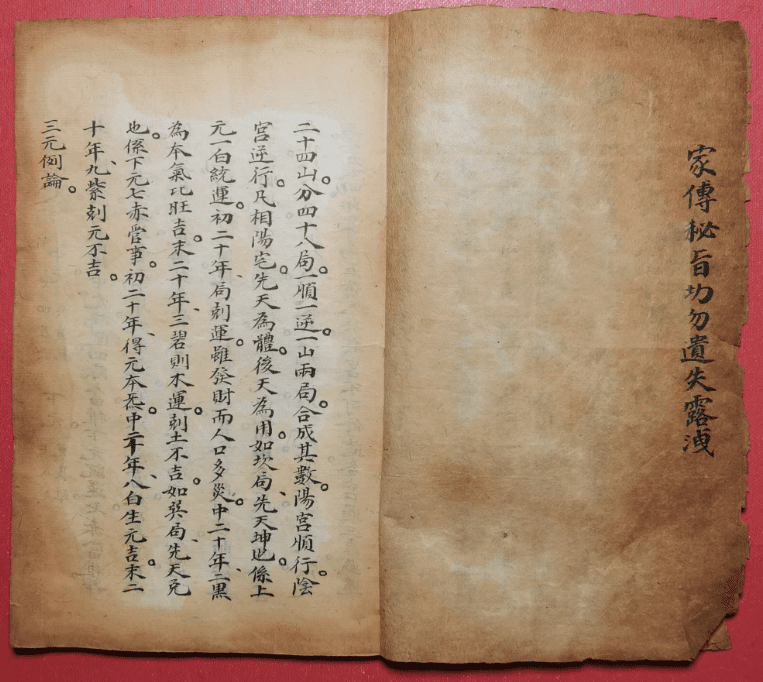 家傳秘旨切勿遺失露洩
二十四山分四十八局。一順一逆。一山兩局合成其數。陽宮順行陰。
宮逆行。凡相陽宅先天為體。後天為用。如坎局、先天坤也。係上
元一白統運。初二十年、局剋運。雖發財而人口多災。中二十年、二黑
為本氣比旺吉。末二十年、三碧則木運。剋土不吉。如巽局、先天兌
也。係下元七赤管事。初二十年、得元本炁。中二十年、八白生元吉。末二
十年、九紫剋元不吉
三元例論。